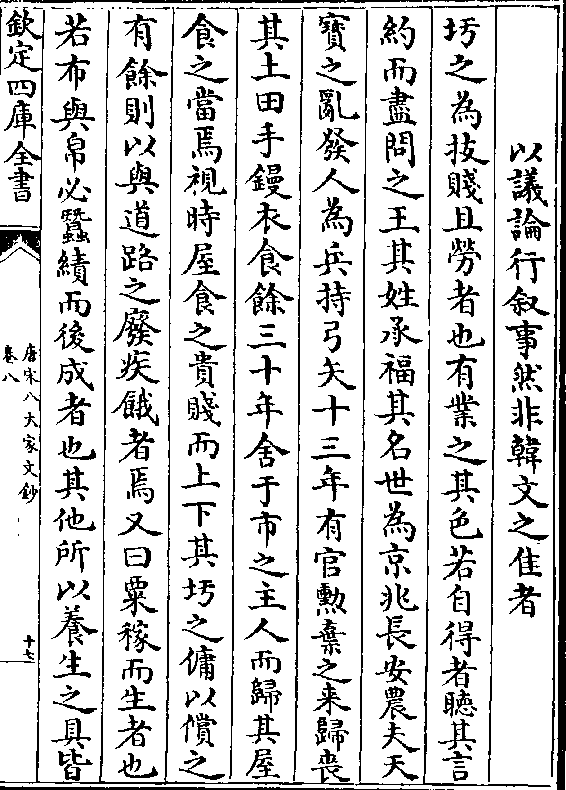 以議論行叙事然非韓文之佳者
圬之為技賤且勞者也有業之其色若自得者聽其言
約而盡問之王其姓承福其名世為京兆長安農夫天
寶之亂發人為兵持弓矢十三年有官勲棄之来歸喪
其土田手鏝衣食餘三十年舍于市之主人而歸其屋
食之當焉視時屋食之貴賤而上下其圬之傭以償之
有餘則以與道路之廢疾餓者焉又曰粟稼而生者也
若布與帛必蠶績而後成者也其他所以養生之具皆
欽定四庫全書
唐宋八大家文鈔
卷八
十七